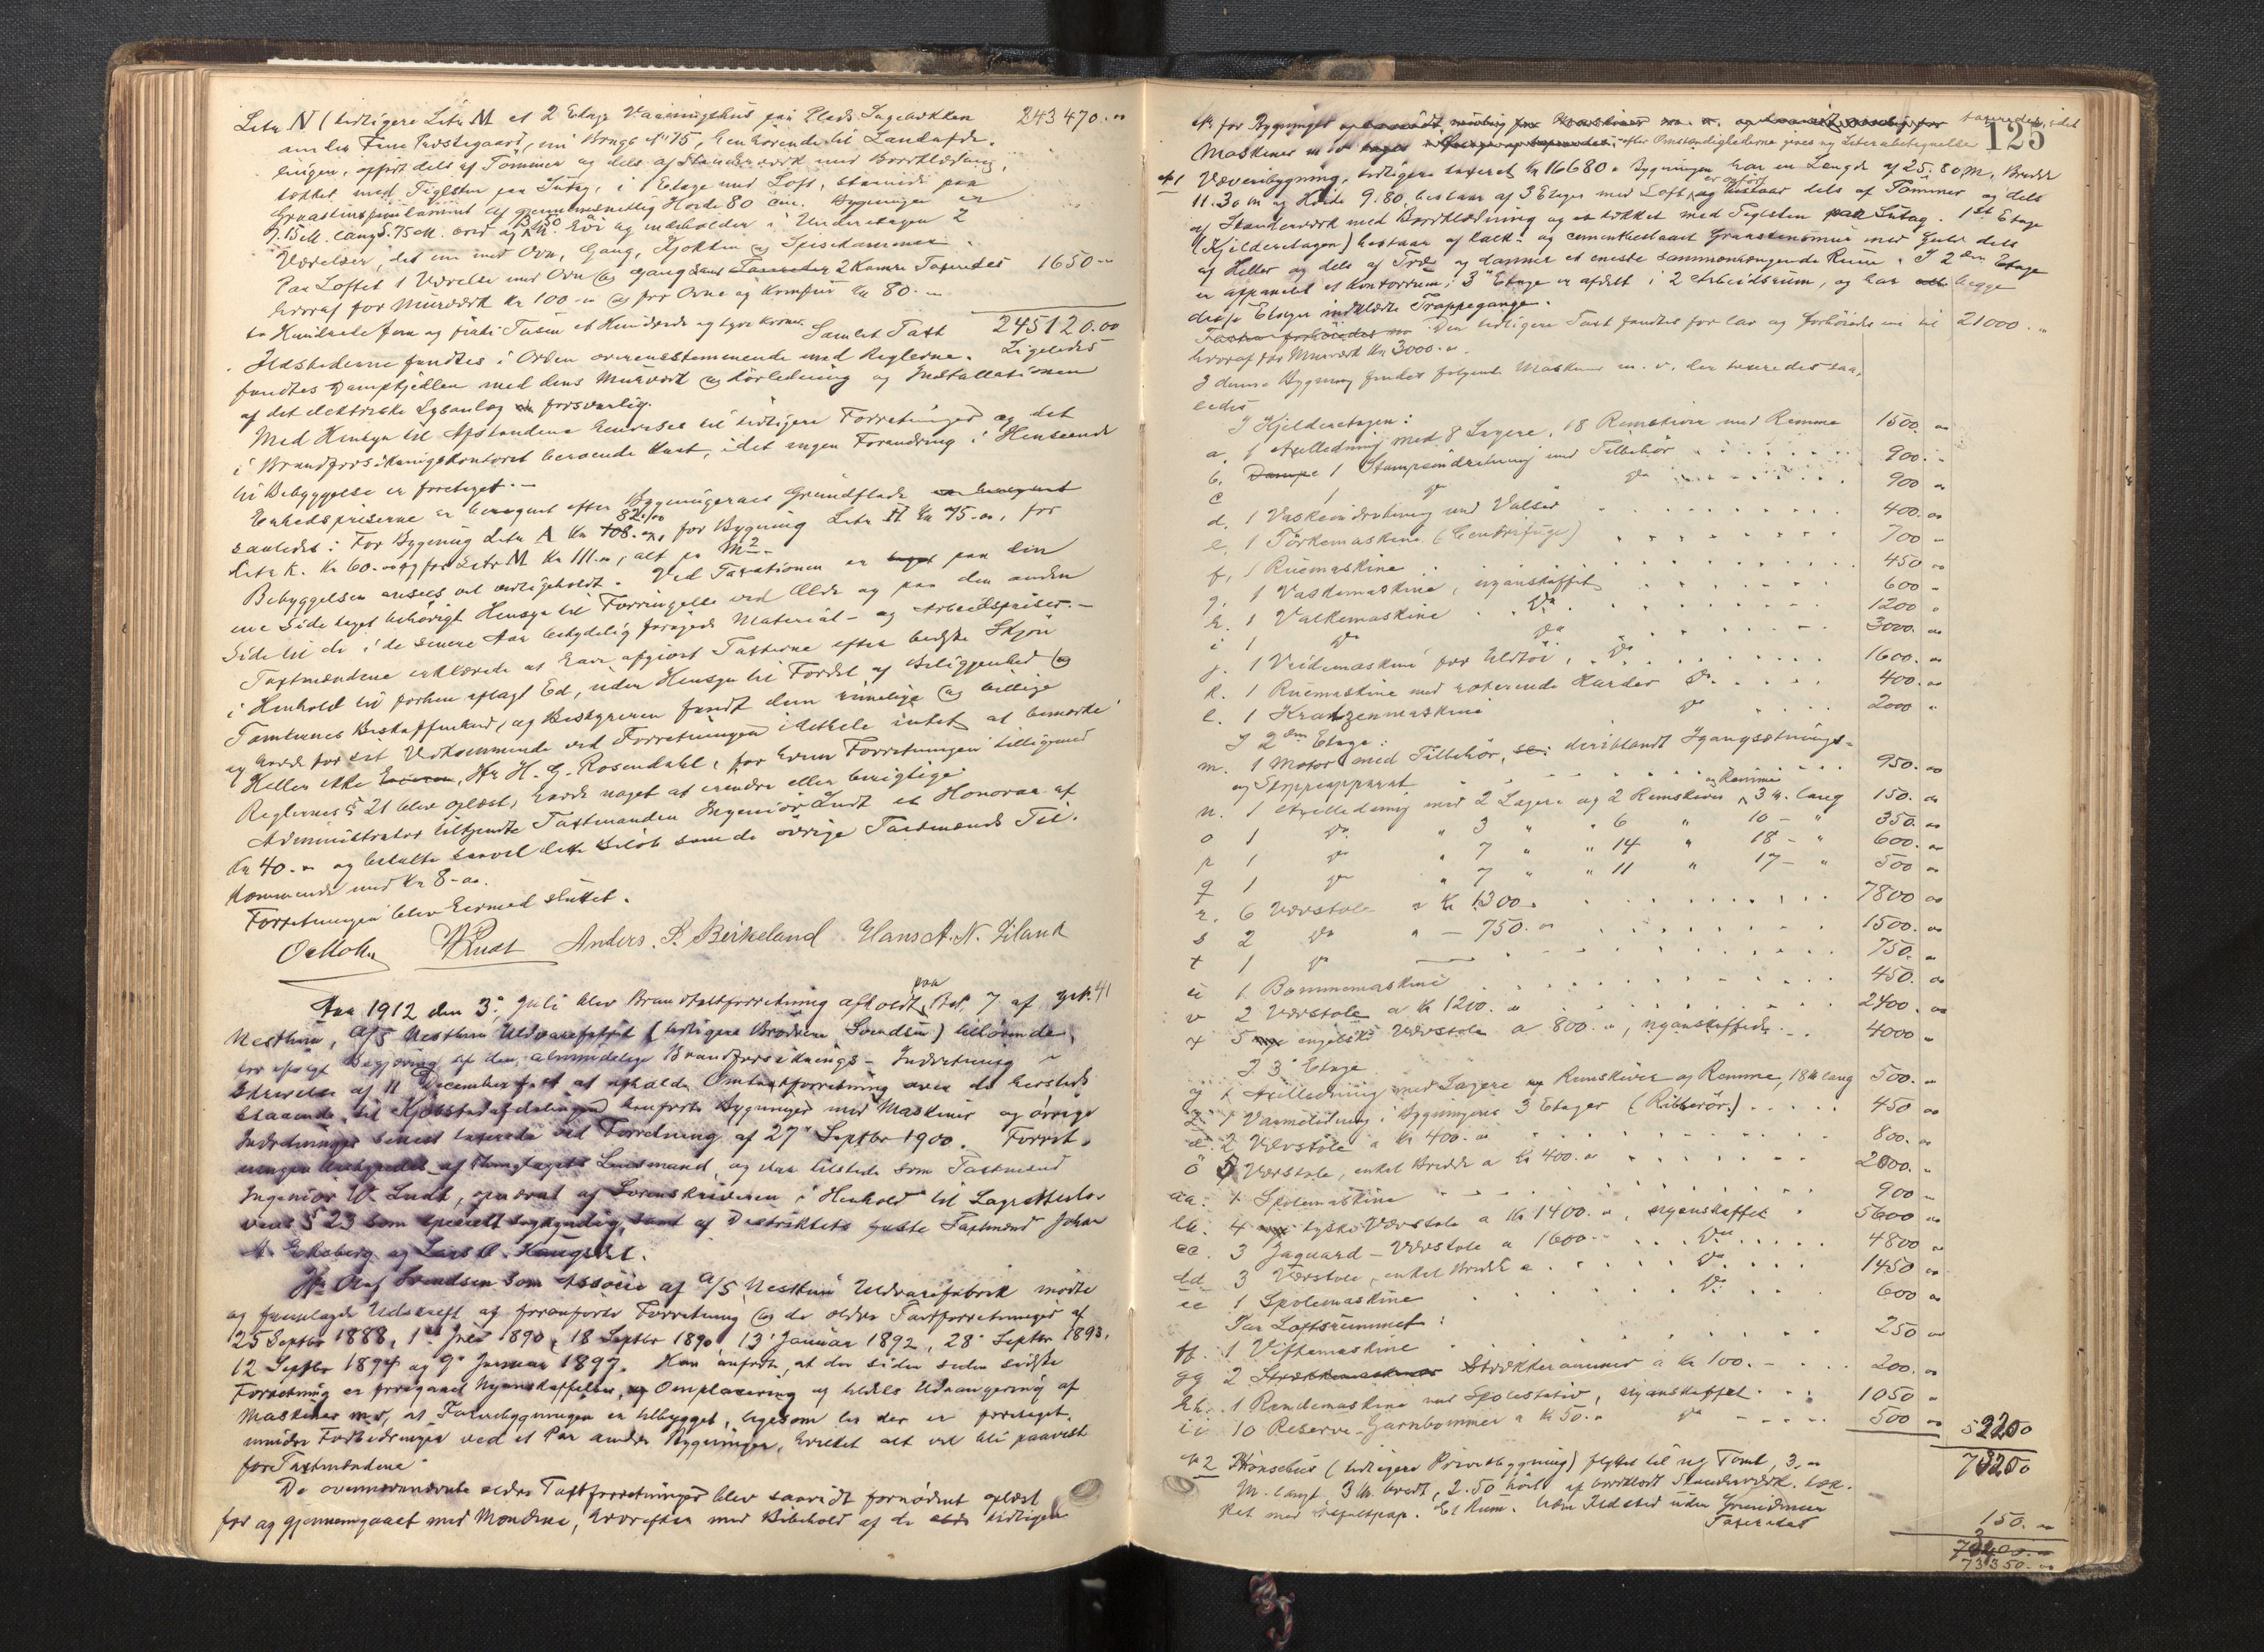 Litr N (tidligere Litr M et 2 Etages Vaaningshus paa Plads Sagebakken 243470.00
under Fane Prestegaard, nu Brugs No 15, henhørende til Landafde-
lingen, opført dels af Tømmer og dels af Stenderværk med Bordklædning,
tækket med Teglsten paa Sutag, i 1 Etage med Loft, staaende paa
Graastensfundament af gjennemsnitlig Høide 80 cm. Bygningen er
9.15 M. lang 5.75 M. bred og 3.50 M. høi og indeholder i Underetagen 2
Værelser, det ene med Ovn, Gang, Kjøkken og Spisekammer.
Paa Loftet 1 Værelse med Ovn og Gang samt 2 Kamre Taxeredes 1650.-
hvoraf for Murværk Kr 100.- og for Ovne og Komfur Kr 80.-
to Hundrede fem og firti Tusen et Hundrede og tyve Kroner. Samlet Taxt 245120.00
Ildstederne fandtes i Orden overensstemmende med Reglerne. Ligeledes
fandtes Dampkjedlen med dens Murværk og Rørledning og Installationen
af det elektriske Lysanlæg forsvarlig.
Med Hensyn til Afstandene henvises til tidligere Forretninger og det
i Brandforsikringskontoret beroende Kart, idet ingen Forandring i Henseende
til Bebyggelse er foretaget.-
Enhedspriserne er beregnet efter Bygningernes Grundflade
saaledes: For Bygning Litr A Kr 82.00, for Bygning Litr H Kr 75.00, for
Litr K. Kr 60.- og for Litr M Kr 111.-, alt pr M2.-
Bebyggelsen ansees vel vedligeholdt. Ved Taxationen er paa den
ene Side taget behørigt Hensyn til Forringelse ved Ælde og paa den anden
Side til de i de senere Aar betydelig forøgede Material- og Arbeidspriser.-
Taxtmændene erklærede at have afgivet Taxterne efter bedste Skjøn
i Henhold til forhen aflagt Ed, uden Hensyn til Fordel af Beliggenhed og
Tomternes Beskaffenhed, og Bestyreren fandt dem rimelige og billige
og havde for sit Vedkommende ved Forretningen idethele intet at bemærke.
Heller ikke Hr H. G. Rosendahl, for hvem Forretningen tilligemed
Reglernes § 21 blev oplæst, havde noget at erindre eller berigtige.
Administrator tilkjendte Taxtmanden Ingeniør Lindt et Honorar af
Kr 40.- og betalte saavel dette Beløb som de øvrige Taxtmænds Til-
kommende med Kr 8.-
Forretningen blev hermed sluttet.
Anders. P. Birkeland Hans A. N. Liland
Aar 1912 den 3. Juli blev Brandtaxtforretning afholdt paa Brt. 7 af grn. 41
Nesttun, A/S Nesttun Uldvarefabrik (tidligere Brødrene Svendsen) tilhørende,
for ifølge Begjæring til den almindelige Brandforsikrings-Indretning
Skrivelse af 11 December f. A. at afholde Omtaxtforretning over de hersteds
staaende til Kjøbstadafdelingen henførte Bygninger med Maskiner og øvrige
Indretninger senest taxerede ved Forretning af 27 Septbr 1900. Forret-
ningen bestyredes af Thinglagets Lensmand, og var tilstede som Taxtmænd
Ingeniør W. Lindt, opnævnt af Sorenskriveren i Henhold til Lagrettelo-
vens § 23 som specielt sagkyndig, samt af Distriktets faste Taxtmænd Johan
A. Ekeberg og Lars O. Haugset.
Hr. Olaf Svendsen som Associe af A/S Nesttun Uldvarefabrik mødte
og fremlagde Udskrift af foranførte Forretning og de ældre Taxtforretninger af
25 Septbr 1888, 1 Juli 1890, 18 Septbr 1890, 13 Januar 1892, 28 Septbr 1893,
12 Septbr 1894 og 9 Januar 1897. Han anførte, at der siden sidste
Forretning er foregaaet Nyanskaffelser, Omplacering og tildels Udrangering af
Maskiner m.v., at Farveribygningen er tilbygget, ligesom der er foretaget
mindre Forbedringer ved et Par andre Bygninger, hvilket alt vil bli paavist
for Taxtmændene.
De ovennævnte ældre Taxtforretninger blev saavidt fornødent oplæst
for og gjennemgaaet med Mændene, hvorefter med Bibehold af de tidligere
125
No for Bygninger taxeredes, idet
Maskiner efter Omstændighederne gives ny Literabetegnelse
No 1 Væveribygning, tidligere taxeret Kr 16680.- Bygningen har en Længde af 25.80 m, Bredde
11.30 m og Høide 9.80, bestaar af 3 Etager med Loft, er opført dels af Tømmer og dels
af Stenderværk med Bordklædning og er tækket med Teglsten paa Sutag. 1ste Etage
(Kjelderetagen) bestaar af kalk- og cementbestaaet Graastensmur med Gulv dels
af Heller og dels af Træ og danner et eneste sammenhængende Rum. I 2den Etage
er afpanelet et Kontorrum, 3 Etage er afdelt i 2 Arbeidsrum, og har begge
disse Etager indklædte Trappegange.
Den tidligere Taxt fandtes for lav og forhøiedes nu til 21000.-
hvoraf for Murværk Kr 3000.-
I denne Bygning findes følgende Maskiner m. v. der taxeredes saa-
ledes
I Kjelderetagen:
a. 1 Axelledning med 8 Lagere, 18 Remskiver med Remme 1500.-
b. 1 Stampeindretning med Tilbehør 900.-
c 1 do do 900.-
d. 1 Vaskeindretning med Valser 400.-
e. 1 Tørkemaskine (Centrifuge) 700.-
f. 1 Ruemaskine 450.-
g. 1 Vaskemaskine, nyanskaffet 600.-
h. 1 Valkemaskine do 1200.-
i 1 do do 3000.-
j. 1 Vridemaskine for Uldtøi, do 1600.-
k. 1 Ruemaskine med roterende Karder do 400.-
l. 1 Kratzenmaskine do 2000.-
I 2den Etage:
m. 1 Motor med Tilbehør, deriblandt Igangsætnings-
og Stoppeapparat 950.-
n. 1 Axelledning med 2 Lagere og 2 Remskiver og Remme 3 m. lang 150.-
o 1 do " 3 " " 6 " 10 - " 350.-
p 1 do " 7 " " 14 " 18 - " 600.-
q 1 do " 7 " " 11 " 17 - " 500.-
r. 6 Vævstole a Kr 1300.- 7800.-
s 2 do a - 750.- 1500.-
t 1 do 750.-
u 1 Bommemaskine 450.-
v 2 Vævstole a Kr 1200.- 2400.-
x 5 engelske Vævstole a 800.-, nyanskaffede 4000.-
I 3 Etage
y 1 Axelledning med Lagere og Remskiver og Remme, 18 m lang 500.-
z 1 Varmeledning i Bygningens 3 Etager (Ribberør.) 450.-
æ 2 Vævstole a Kr 400.- 800.-
ø 5 Vævstole, enkel Bredde a Kr 400.- 2000.-
aa. 1 Spolemaskine 900.-
bb. 4 tyske Vævstole a Kr 1400.-, nyanskaffet 5600.-
cc. 3 Jaquard-Vævstole a 1600.- do 4800.-
dd 3 Vævstole, enkel Bredde a do 1450.-
ee 1 Spolemaskine do 600.-
Paa Loftsrummet:
ff. 1 Viftemaskine 250.-
gg 2 Strækkerammer a Kr 100.- 200.-
hh. 1 Rendemaskine med Spolestativ, nyanskaffet 1050.-
ii 10 Reserve-Garnbommer a Kr 50.- do 500.- 52250
73250
No 2 Hønsehus (tidligere Privetbygning) flyttet til ny Tomt, 3.-
M. langt 3 M. bredt, 2.50 høit af bordklædt Stenderværk, tæk-
ket med Asfaltpap. Et Rum. Uden Ildsted uden Grundmur
Taxeredes 150.-
73350.-